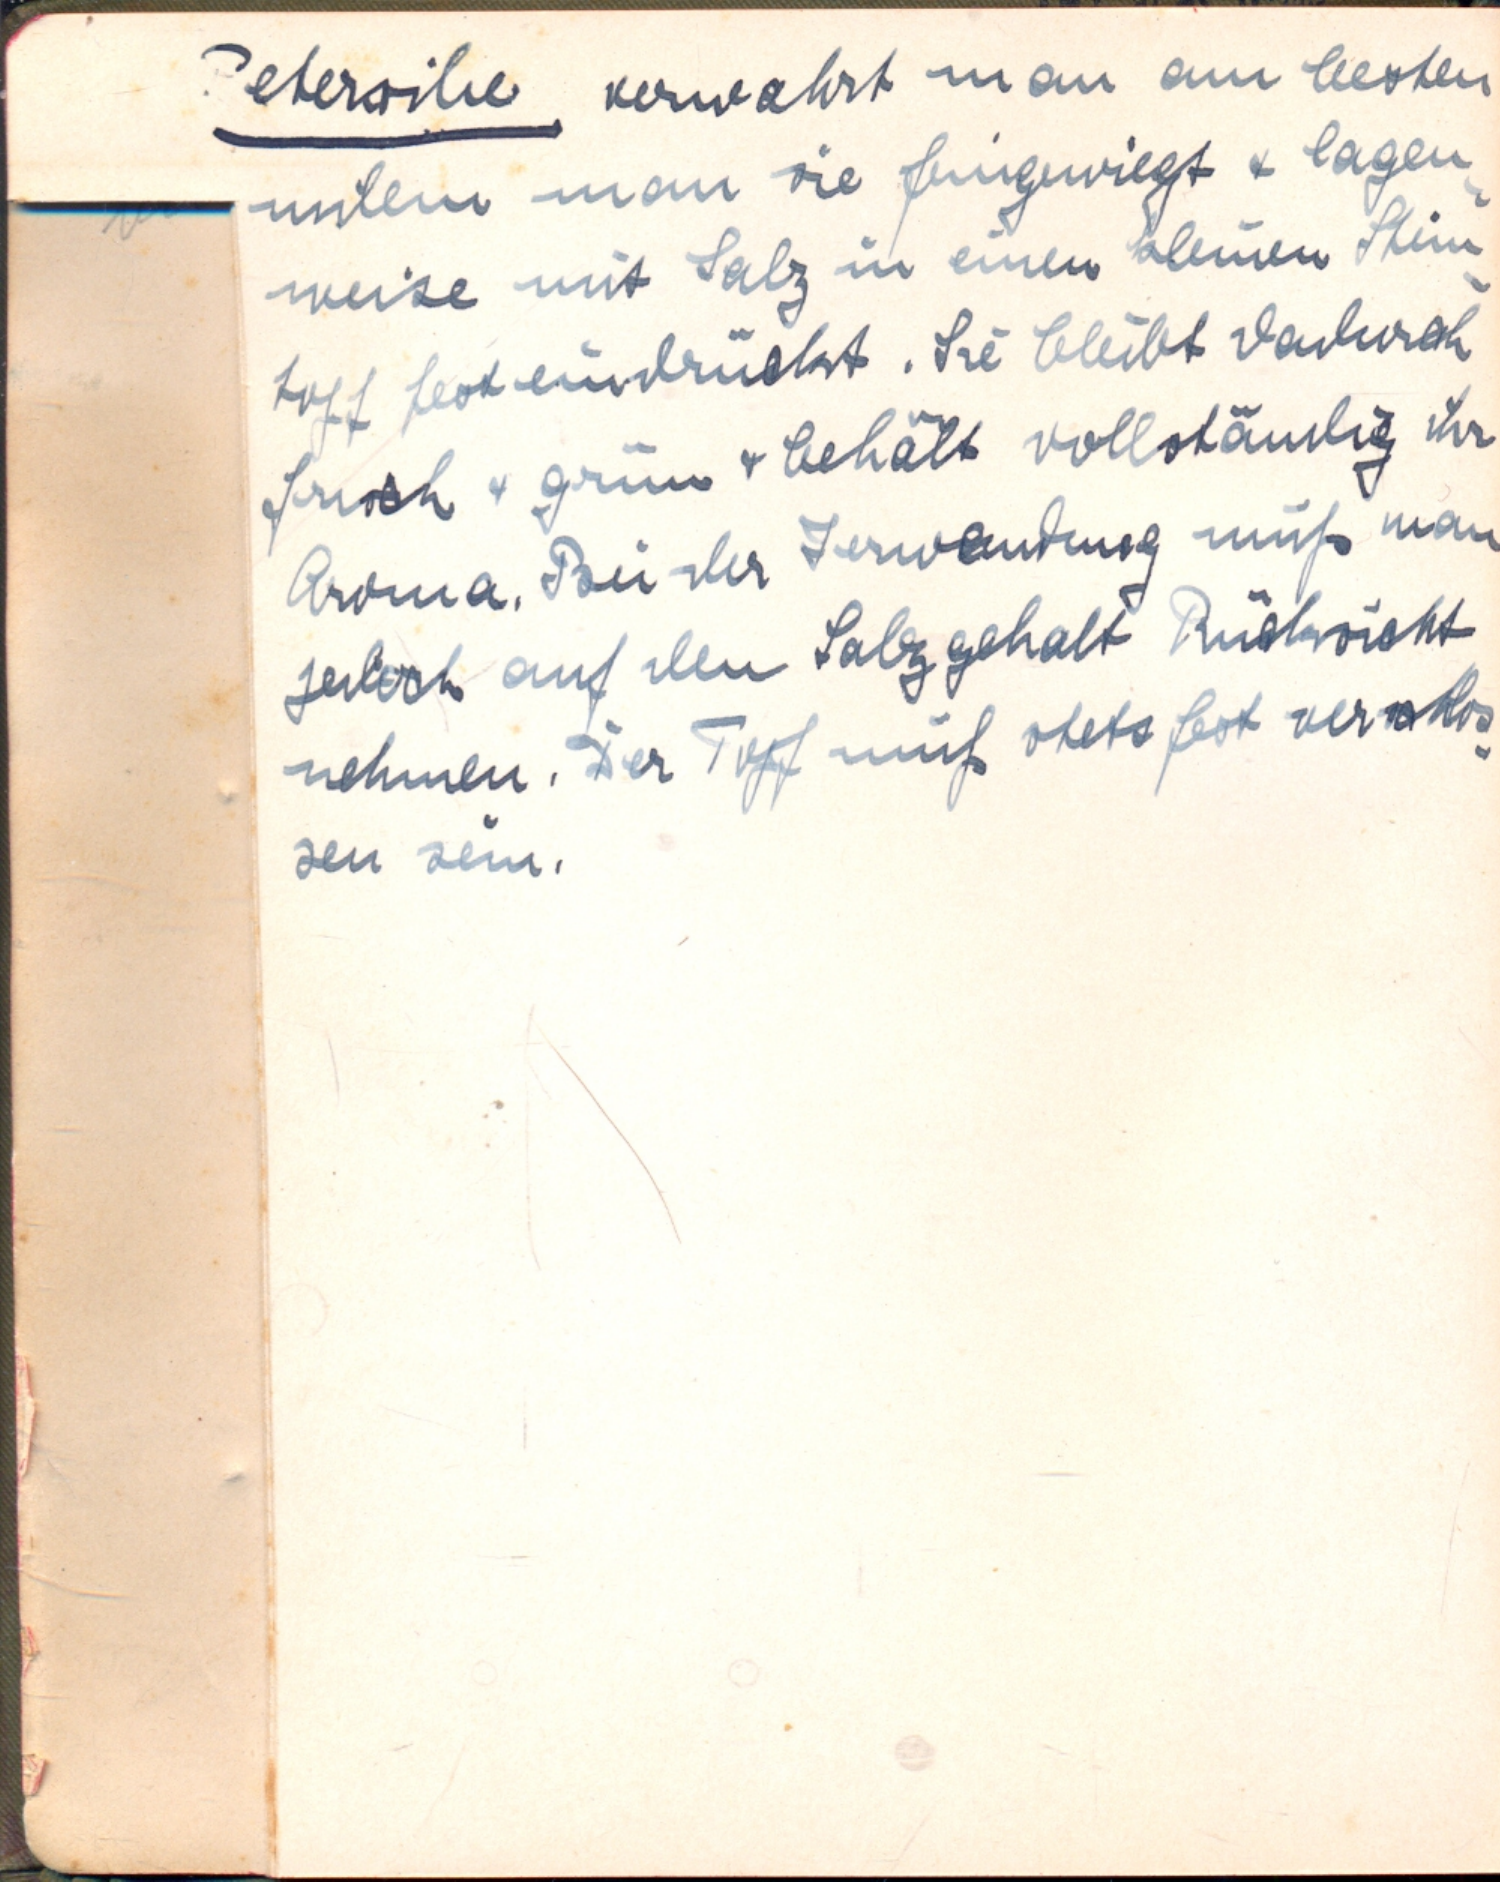 Petersilie verwahrt man am besten
indem man sie feingewiegt & lagen-
weise mit Salz in einen kleinen Stein-
topf fest eindrückt. Sie bleibt dadurch
frisch & grün & behält vollständig ihr
Aroma. Bei der Verwendung muß man
jedoch auf den Salzgehalt Rücksicht
nehmen. Der Topf muß stets fest verschlos-
sen sein.